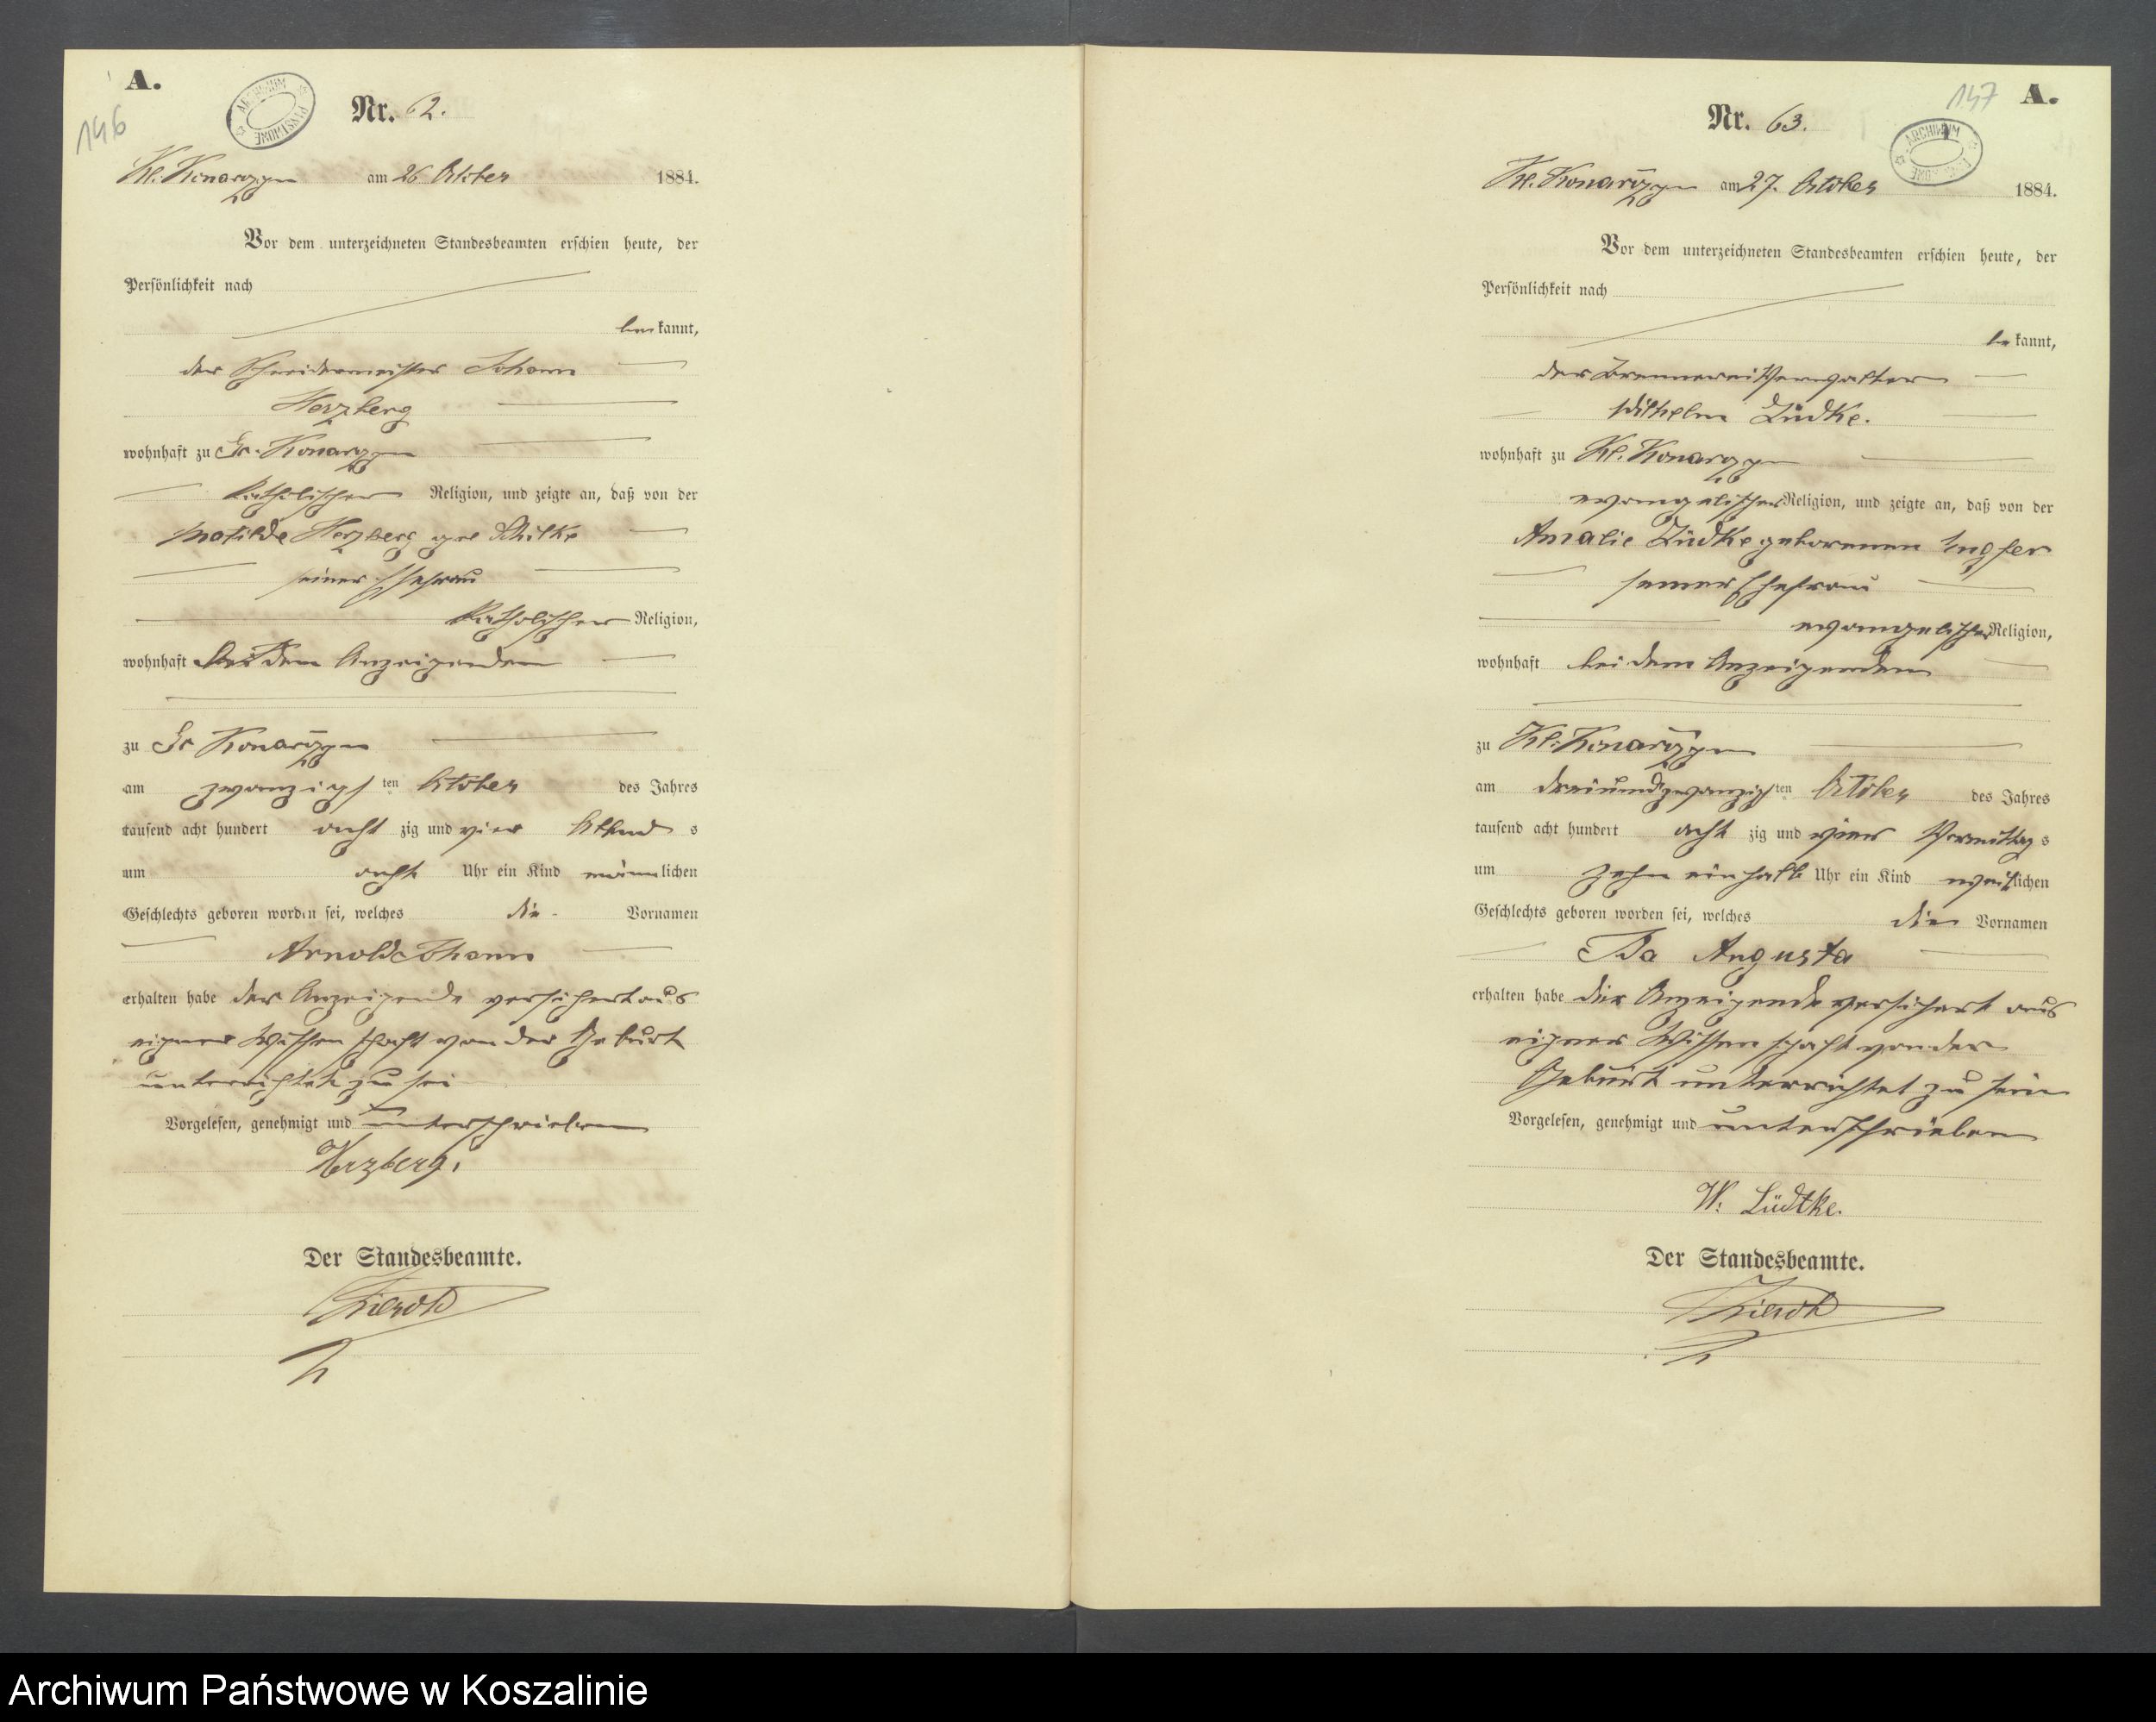 A.
146
Nr. 62.
Kl. Konarczyn am 26 Oktober 1884.
Vor dem unterzeichneten Standesbeamten erschien heute, der
Persönlichkeit nach
be kannt,
der Schneidermeister Johann
Herzberg
wohnhaft zu Gr. Konarczyn
katholischer Religion, und zeigte an, daß von der
Matilde Herzberg geb Schilke
seiner Ehefrau
katholischer Religion,
wohnhaft bei dem Anzeigenden
zu Gr Konarczyn
am zwanzigs ten Oktober des Jahres
tausend acht hundert acht zig und vier Abend s
um acht Uhr ein Kind männ lichen
Geschlechts geboren worden sei, welches die Vornamen
Arnold Johann
erhalten habe der Anzeigende versichert aus
eigner Wissenschaft von der Geburt
unterrichtet zu sei
Vorgelesen, genehmigt und unterschrieben
Herzberg.
Der Standesbeamte.
147
A.
Nr. 63.
ARCHIWUM
Kl. Konarczyn am 27. Oktober 1884.
Vor dem unterzeichneten Standesbeamten erschien heute, der
Persönlichkeit nach
be kannt,
der Brennerei Verwalter
Wilhelm Lüdke.
wohnhaft zu Kl. Konarczyn
evangelischer Religion, und zeigte an, daß von der
Amalie Lüdke geborenen
seiner Ehefrau
evangelischer Religion,
wohnhaft bei dem Anzeigenden
zu Kl. Konarczyn
am dreiundzwanzigs ten Oktober des Jahres
tausend acht hundert acht zig und vier Vormittag s
um zehn einhalb Uhr ein Kind weib lichen
Geschlechts geboren worden sei, welches die Vornamen
Ida Augusta
erhalten habe der Anzeigende versichert aus
eigner Wissenschaft von der
Geburt unterrichtet zu sein
Vorgelesen, genehmigt und unterschrieben
W. Lüdtke.
Der Standesbeamte.
Archiwum Państwowe w Koszalinie